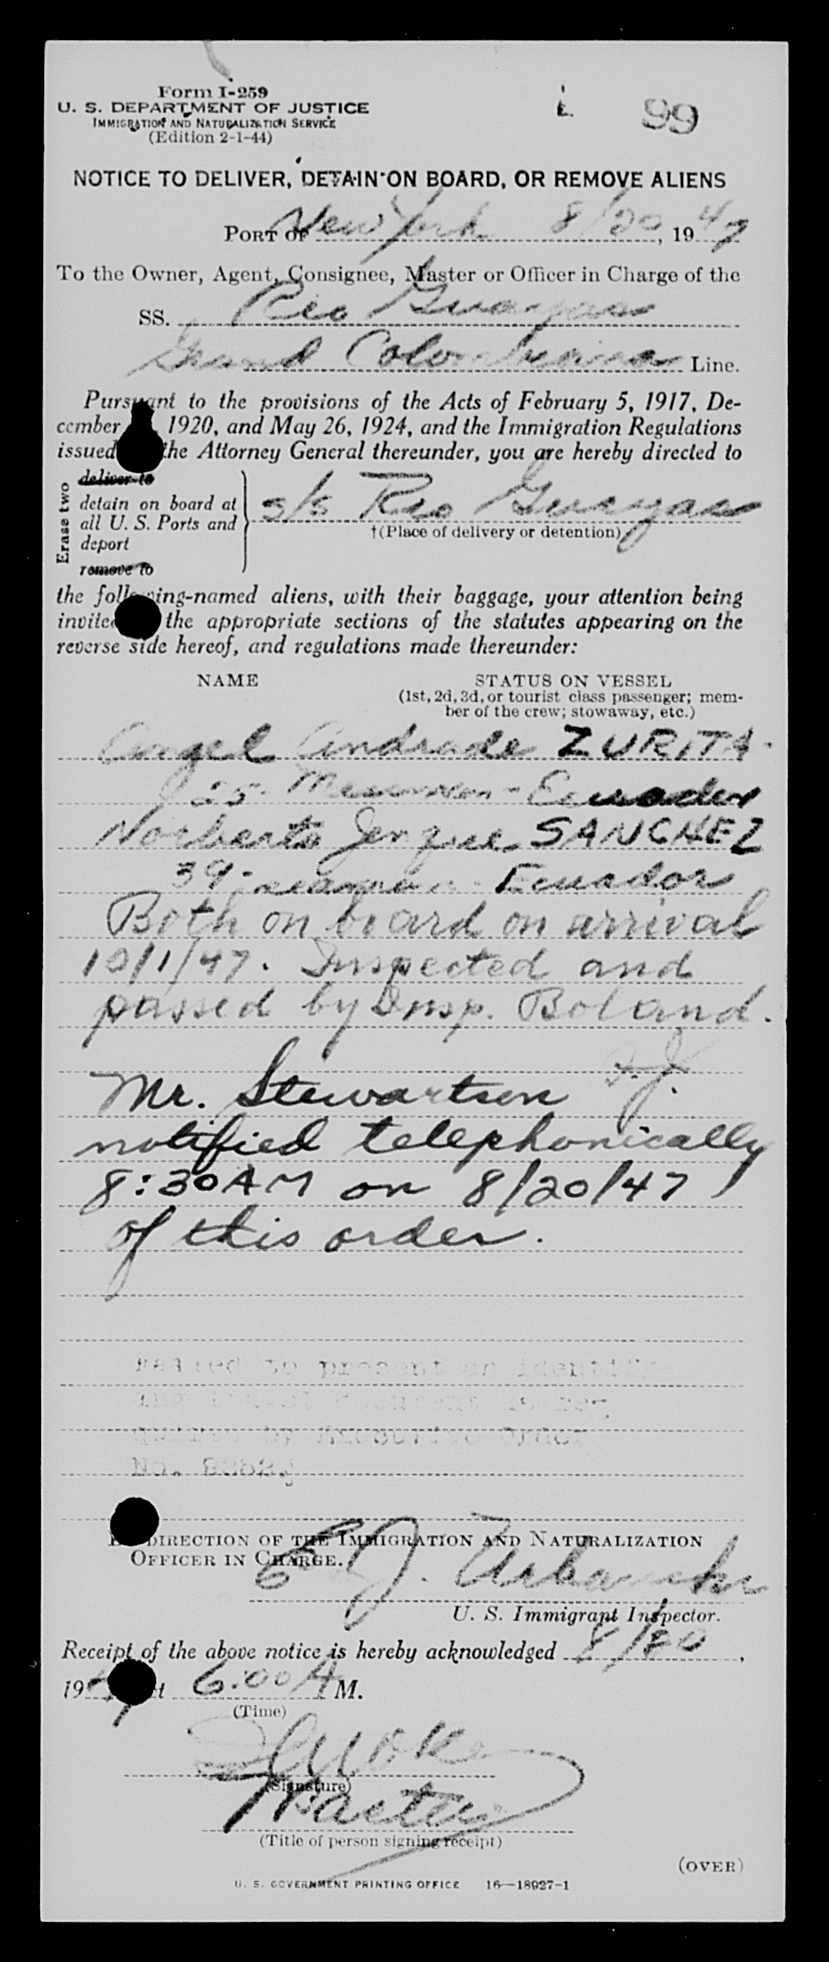 Form I-259
U. S. DEPARTMENT OF JUSTICE
IMMIGRATION AND NATURALIZATION SERVICE
(Edition 2-1-44)
99
NOTICE TO DELIVER, DETAIN ON BOARD, OR REMOVE ALIENS
PORT OF New York 8/20, 1947
To the Owner, Agent, Consignee, Master or Officer in Charge of the
SS. Rio Guayas
Grand Colombiana Line.
Pursuant to the provisions of the Acts of February 5, 1917, De-
cember 1920, and May 26, 1924, and the Immigration Regulations
issued the Attorney General thereunder, you are hereby directed to
Erase two
deliver to
detain on board at
all U. S. Ports and
deport
remove to
s/s Rio Guayas
†(Place of delivery or detention)
the following-named aliens, with their baggage, your attention being
invited the appropriate sections of the statutes appearing on the
reverse side hereof, and regulations made thereunder:
NAME STATUS ON VESSEL
(1st, 2d, 3d, or tourist class passenger; mem-
ber of the crew; stowaway, etc.)
Angel Andrade ZURITA
25 - Ecuador
Norberto SANCHEZ
39 - seaman - Ecuador
Both on board on arrival
10/1/47. Inspected and
passed by Insp. Boland.
Mr. Stewartson
notified telephonically
8:30 AM on 8/20/47
of this order.
to present an
No.
BY DIRECTION OF THE IMMIGRATION AND NATURALIZATION
OFFICER IN CHARGE.
E J. Urbanski
U. S. Immigrant Inspector.
Receipt of the above notice is hereby acknowledged 8/20,
1947 at 6:00 A M.
(Time)
(Signature)
Master
(Title of person signing receipt)
(OVER)
U. S. GOVERNMENT PRINTING OFFICE 16—18927-1